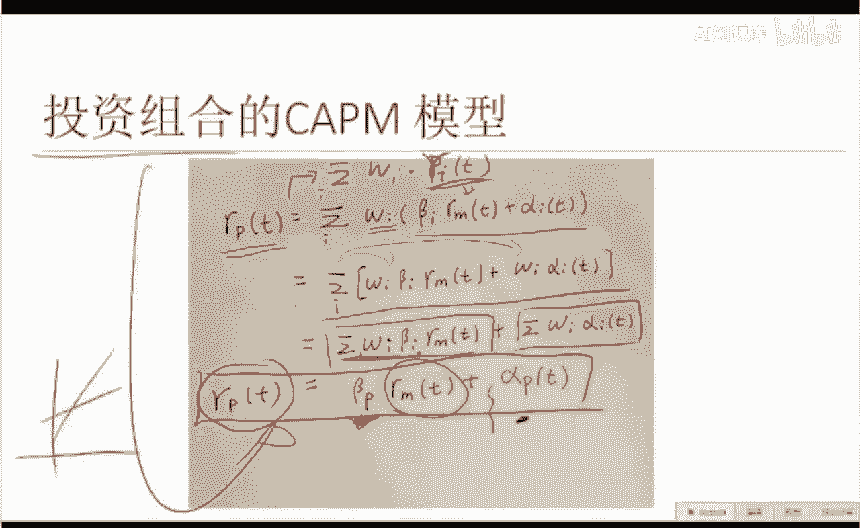 投资组合的CAPM 模型
Σ wᵢ · rᵢ(t)
rₚ(t) = Σᵢ wᵢ ( βᵢ rₘ(t) + αᵢ(t) )
= Σᵢ [ wᵢ βᵢ rₘ(t) + wᵢ αᵢ(t) ]
= Σ wᵢ βᵢ rₘ(t) + Σ wᵢ αᵢ(t)
rₚ(t) = βₚ rₘ(t) + αₚ(t)